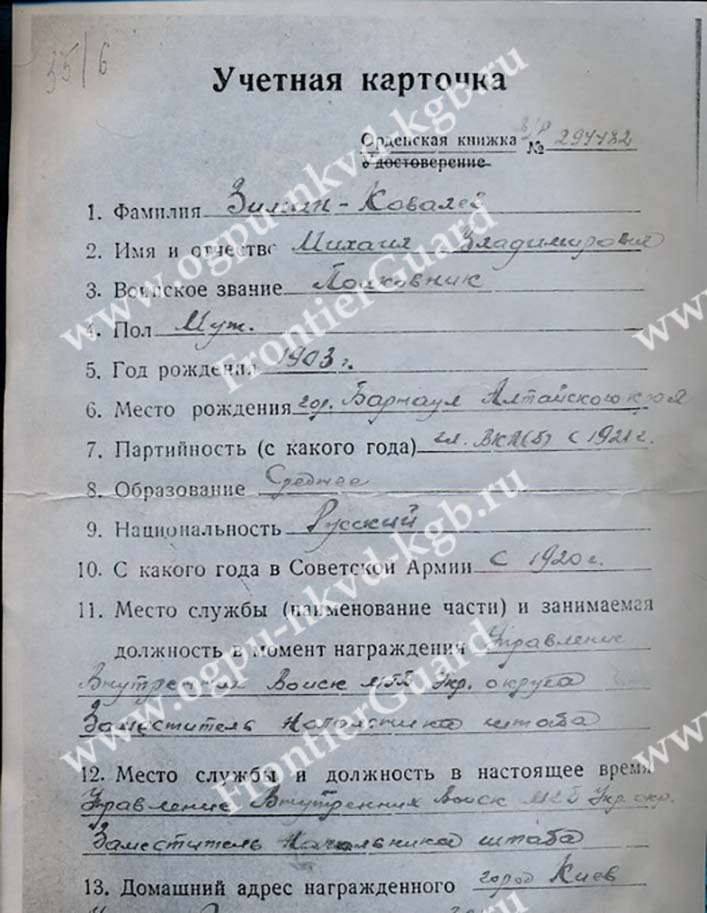 35/6
Учетная карточка
Орденская книжка № 294482
Удостоверение
1. Фамилия Зимин-Ковалев
2. Имя и отчество Михаил Владимирович
3. Воинское звание Полковник
4. Пол Муж.
5. Год рождения 1903 г.
6. Место рождения гор. Барнаул Алтайского края
7. Партийность (с какого года) чл. ВКП(б) с 1921 г.
8. Образование Среднее
9. Национальность Русский
10. С какого года в Советской Армии с 1920 г.
11. Место службы (наименование части) и занимаемая
должность в момент награждения Управление
Внутренних Войск МГБ Укр. округа
Заместитель Начальника штаба
12. Место службы и должность в настоящее время
Управление Внутренних Войск МГБ Укр. окр.
Заместитель Начальника штаба
13. Домашний адрес награжденного город Киев
www.ogpu-nkvd-kgb.ru
FrontierGuard
www.ogpu-nkvd-kgb.ru
FrontierGuard